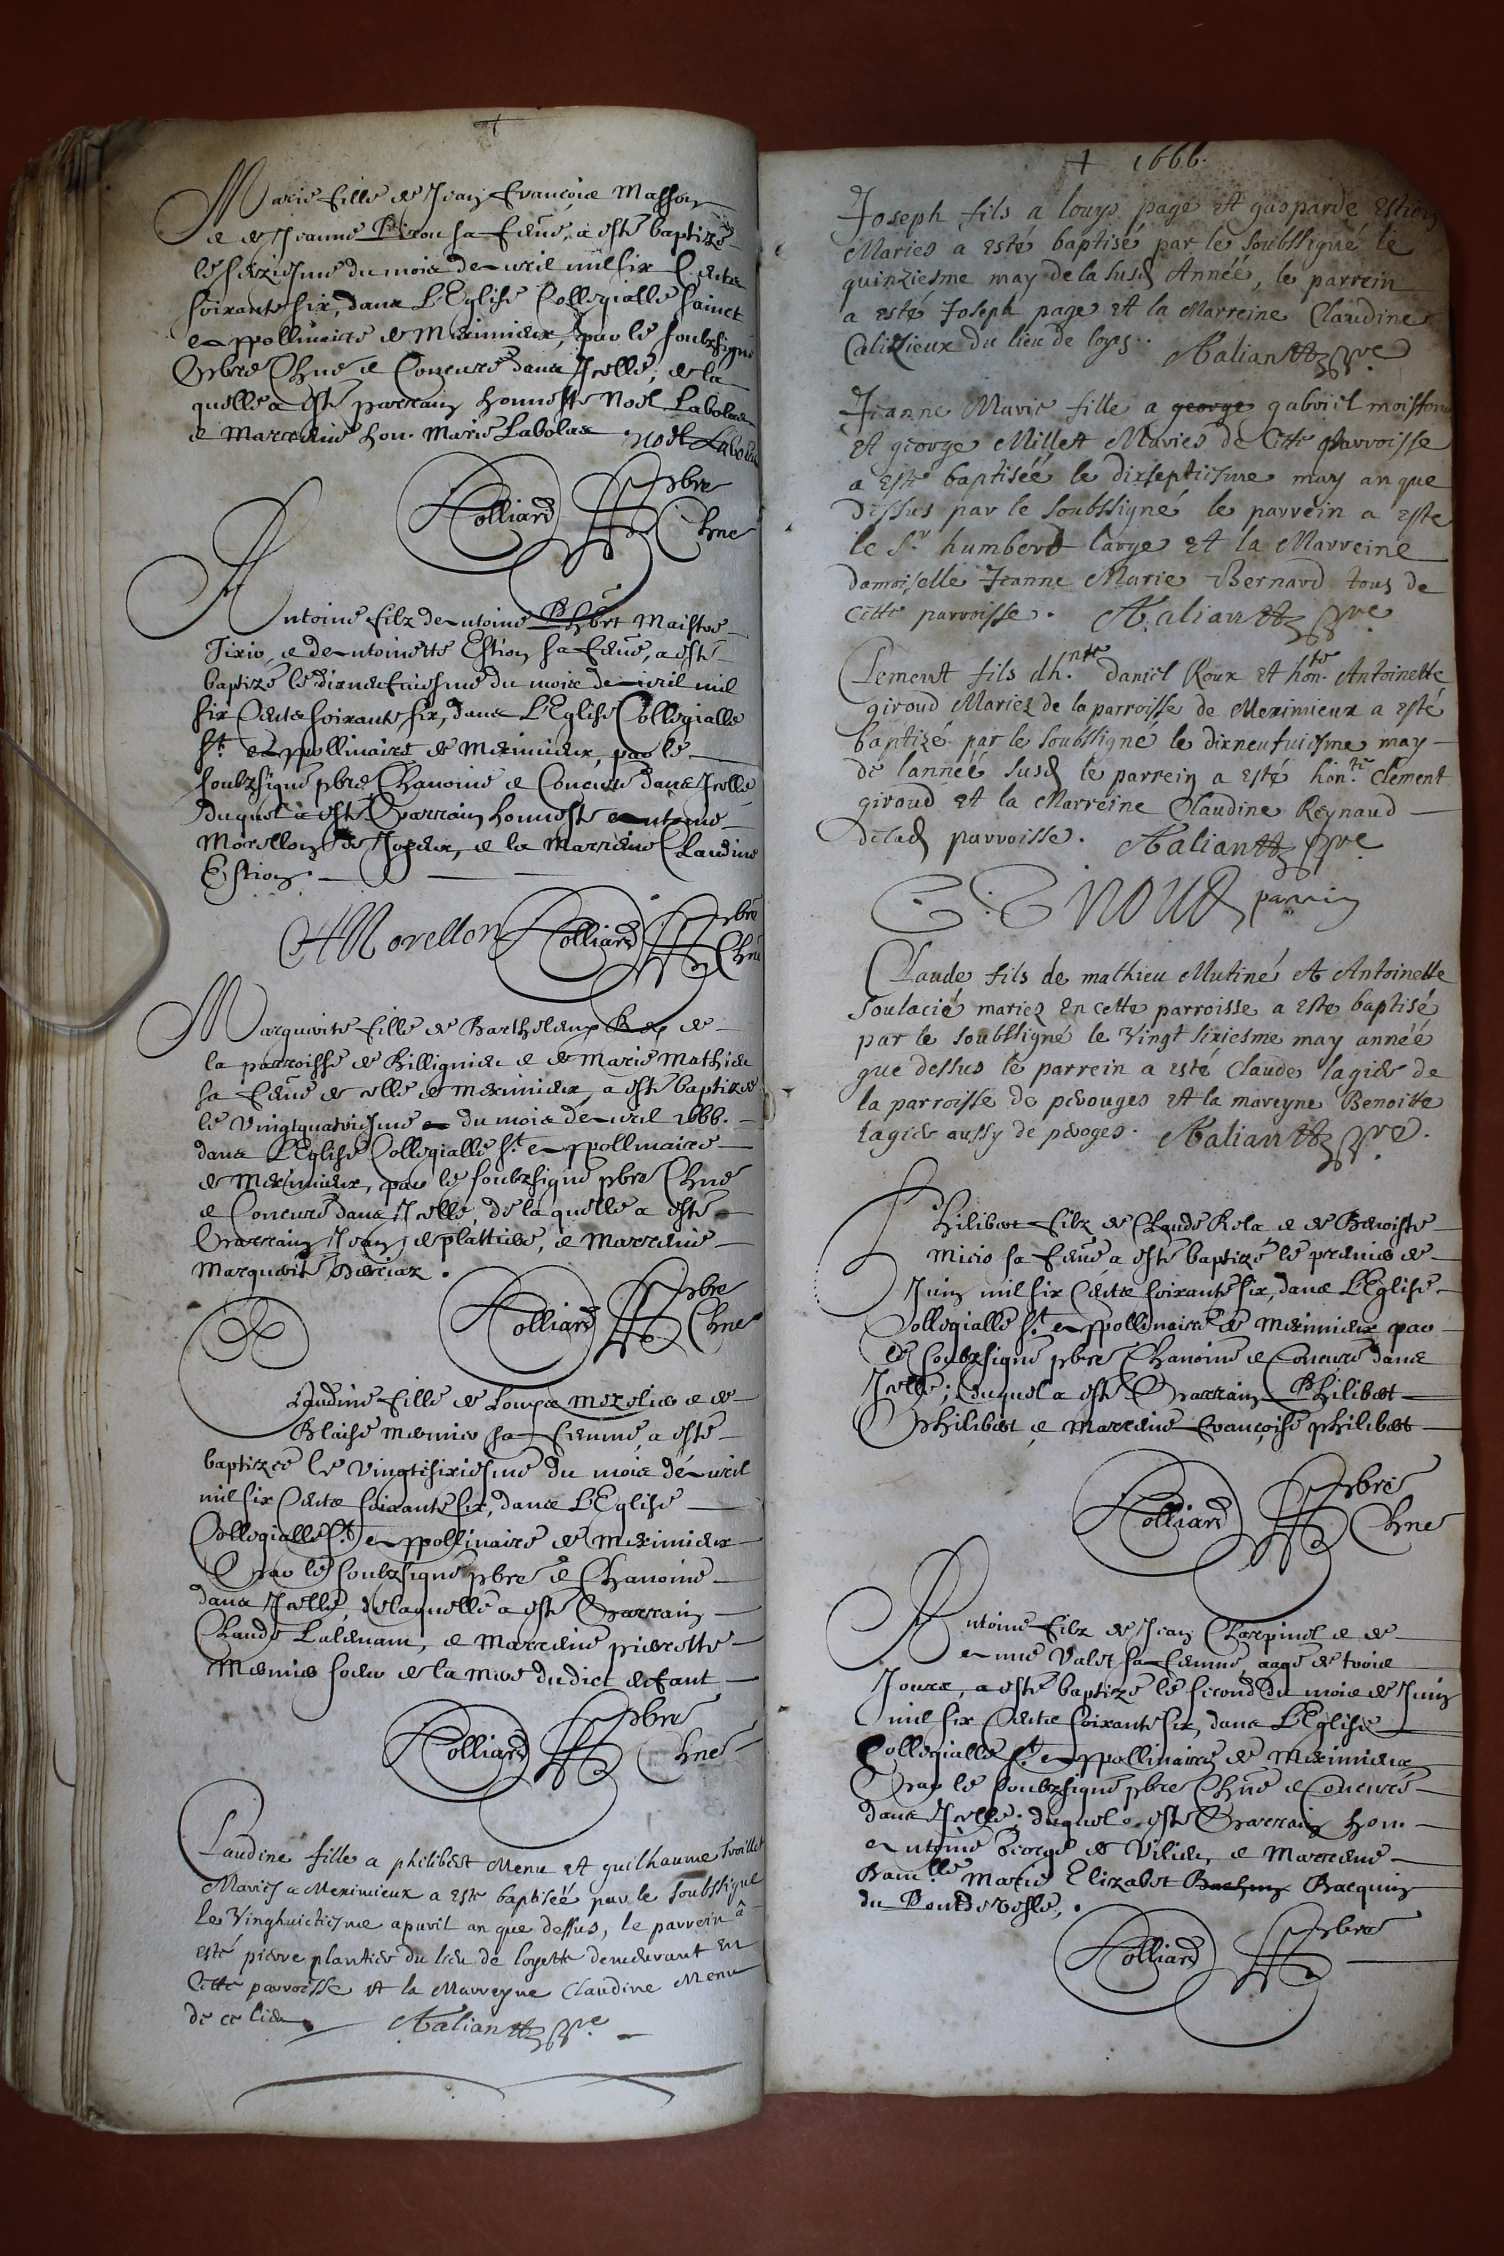 Marie fille de Jean François Masson
e de Jeanne sa feme, a esté baptizé
le seziesme du mois d'Avril mil six Cents
soixante six, dans L'Eglise Collegialle sainct
Appollinaire de Meximieux, par le soubzsigné
Pbre Chne e Concuré dans Icelle; de la
quelle a esté parrain honneste Noël Labolas
e Marraine hon. Marie Labolas. Noël
Rolliard Pbre
Chne
Antoine filz d'Antoine Maistre
Tixie, e d'Antoinette Estion sa feme, a esté
baptizé le dixneufviesme du mois d'Avril mil
six Cents soixante six, dans L'Eglise Collegialle
St. Appollinaire de Meximieux, par le
soubzsigné pbre Chanoine e Concuré dans Icelle
duquel a esté Parrain honneste Antoine
Morellon de e la Marraine Claudine
Estion.
AMorellon Rolliard Pbre
Chne
Marguerite fille de Barthelemy Rey de
la parroisse de Billignieu e de Marie Mathieu
sa feme de celle de Meximieux, a esté baptizée
le vingtquatriesme du mois d'Avril 1666.
dans L'Eglise Collegialle St. Appollinaire
de Meximieux, par le soubzsigné pbre Chne
e Concuré dans Icelle, de la quelle a esté
Parrain Jean e Marraine
Marguerite
Rolliard Pbre
Chne
Claudine fille de Louys e de
Blaise Mesnier sa femme, a esté
baptizée le vingtsixiesme du mois d'Avril
mil six Cents soixante six, dans L'Eglise
Collegialle St. Appollinaire de Meximieux
Par le soubzsigné pbre e Chanoine
dans Icelle, de laquelle a esté Parrain
Claude e Marraine pierrette
Mesnier soeur de la mere dudict enfant
Rolliard Pbre
Chne
Claudine fille a philibert Menu et guilhaume
Mariés a Meximieux a este baptiséé par le soubssigné
le Vinghuictiesme apvril an que dessus, le parrein a
esté pierre plantier du lieu de loyette demeurant en
Cette parroisse et la Marreyne Claudine Menu
de ce lieu
1666.
Joseph fils a louys page et gasparde Estion
Mariés a esté baptisé par le soubssigné le
quinziesme may de la susd Annéé, le parrein
a esté Joseph page et la Marreine Claudine
du lieu de loyes.
Jeanne Marie fille a george gabriel
et george Millett Mariés de Cette parroisse
a este baptiséé le dixseptiesme may an que
dessus par le soubssigné le parrein a este
le Sr humberd large et la Marreine
damoiselle Jeanne Marie Bernard tous de
Cette parroisse.
Clement fils dh.nte Daniel Roux et hon.te Antoinette
giroud Mariez de la parroisse de Meximieux a esté
baptizé par le soubssigné le dixneufviesme may
de l'annéé susd le parrein a esté hon.te Clement
giroud et la Marreine Claudine Reynaud
delad parroisse.
C. Giroud parrin
Claude fils de mathieu Mutiné et Antoinette
Soulacié mariez En cette parroisse a este baptisé
par le soubssigné le Vingt sixiesme may annéé
que dessus le parrein a esté Claude lagier de
la parroisse de pérouges et la mareyne Benoitte
Lagier aussy de péroges.
Philibert filz de Claude Rela e de Benoiste
sa feme a esté baptizé le premier de
Juin mil six Cents soixante six, dans L'Eglise
Collegialle St. Appollinaire de Meximieux par
le soubzsigné pbre Chanoine e Concuré dans
Icelle; duquel a esté Parrain Philibert
Philibert e Marraine Françoise philibert
Rolliard Pbre
Chne
Antoine filz de Jean Charpinel e de
Anne Valet sa femme, aagé de trois
Jours, a esté baptizé le second du mois de Juin
mil six Cents soixante six, dans L'Eglise
Collegialle St. Appollinaire de Meximieux
Par le soubzsigné pbre Chne e Concuré
dans Icelle; duquel a esté Parrain hon.
Antoine George de Vilieu, e Marraine
Dam.lle Marie Elizabet Bacquin
du Pont de vesle.
Rolliard Pbre